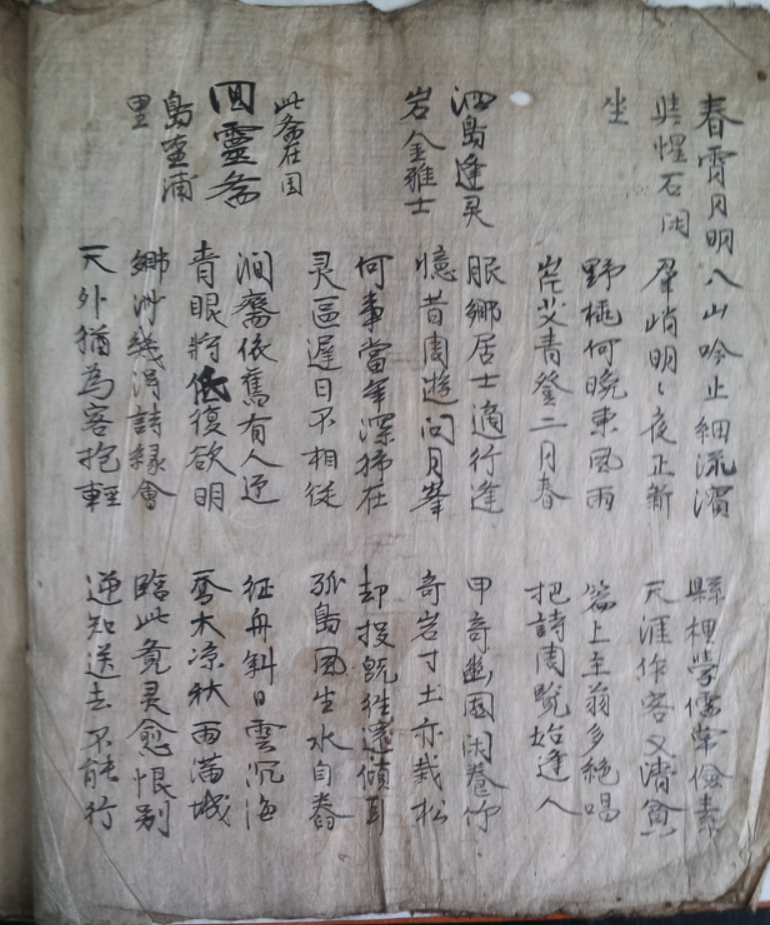 春宵月明
共惺石闲
坐
八山吟止細流濱
縣裡學儒常儉素
羣峭明〻夜正新
天涯作客又清貧
野極何晚東風雨
篇上主翁多絶唱
岸艾青登二月春
把詩周覽始逢人
泗島逢灵
岩金雅士
服鄉居士適行逢
甲奇幽園闲養竹
憶昔周遊问月峯
奇岩寸土亦栽松
何事當年深
在
却投
還傾耳
灵區遲日不相從
孤島風生水自舂
此
在囯
囬靈
島
浦
里
澗齋依舊有人迎
征舟斜日雲沉海
青眼將低復欲明
喬木凉秋雨满城
鄉洲幾得詩緣會
臨此竟灵愈恨别
天外猶為客抱輕
逆知送去不能行